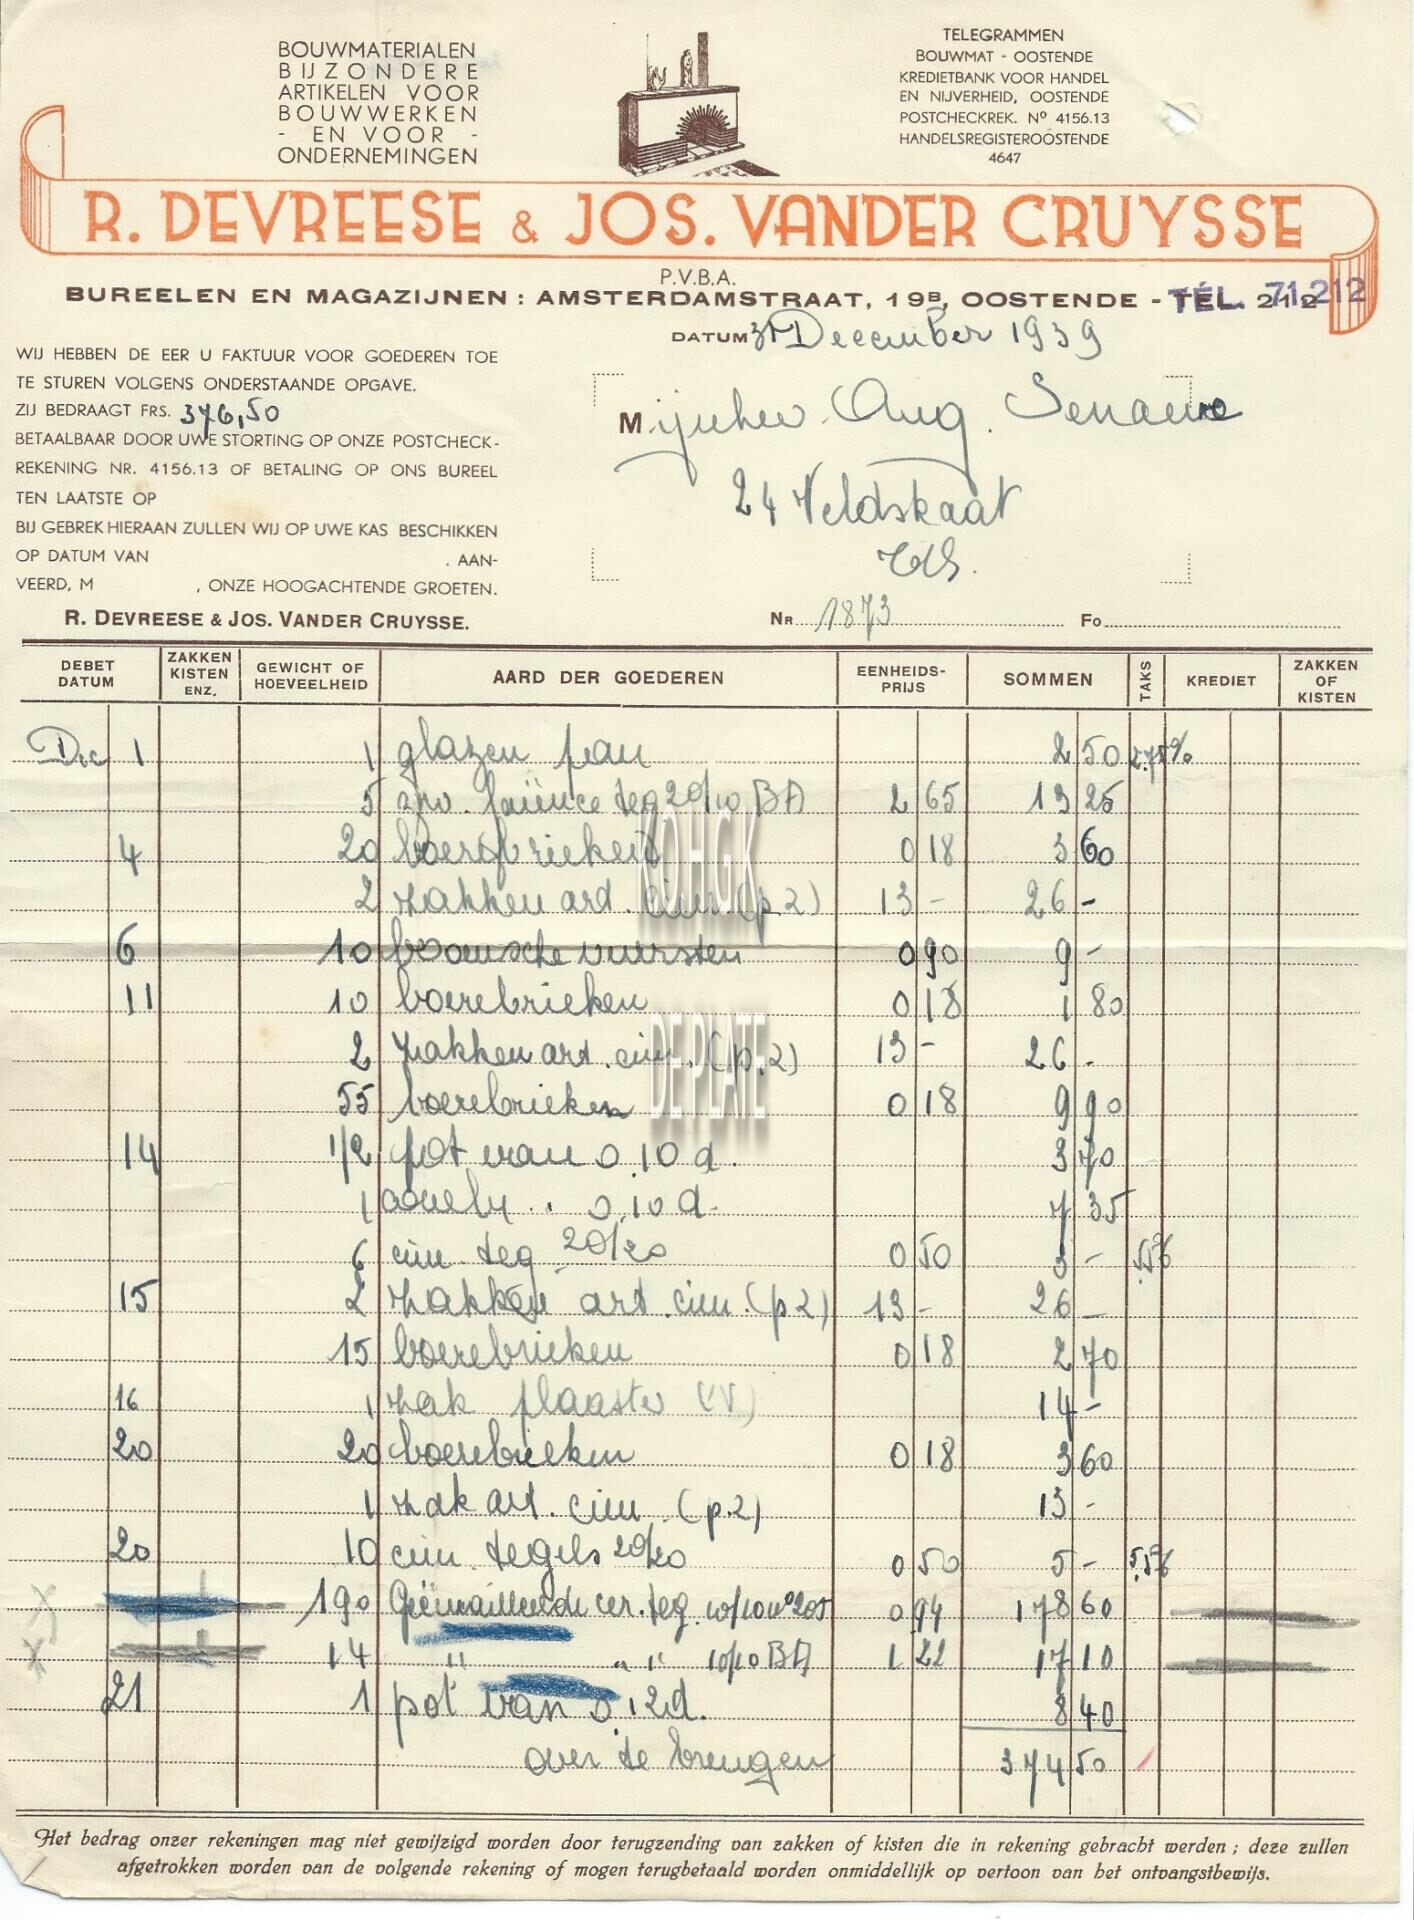 BOUWMATERIALEN
BIJZONDERE
ARTIKELEN VOOR
BOUWWERKEN
- EN VOOR -
ONDERNEMINGEN
TELEGRAMMEN
BOUWMAT - OOSTENDE
KREDIETBANK VOOR HANDEL
EN NIJVERHEID, OOSTENDE
POSTCHECKREK. Nº 4156.13
HANDELSREGISTEROOSTENDE
4647
R. DEVREESE & JOS. VANDER CRUYSSE
P.V.B.A.
BUREELEN EN MAGAZIJNEN : AMSTERDAMSTRAAT, 19B, OOSTENDE - TÉL. 71.212
DATUM 31 December 1939
WIJ HEBBEN DE EER U FAKTUUR VOOR GOEDEREN TOE
TE STUREN VOLGENS ONDERSTAANDE OPGAVE.
ZIJ BEDRAAGT FRS. 376,50
BETAALBAAR DOOR UWE STORTING OP ONZE POSTCHECK-
REKENING NR. 4156.13 OF BETALING OP ONS BUREEL
TEN LAATSTE OP
BIJ GEBREK HIERAAN ZULLEN WIJ OP UWE KAS BESCHIKKEN
OP DATUM VAN . AAN-
VEERD, M , ONZE HOOGACHTENDE GROETEN.
R. DEVREESE & JOS. VANDER CRUYSSE.
Mijnheer Aug.
24 Veldstraat
NR 1873 FO
DEBET DATUM ZAKKEN KISTEN ENZ. GEWICHT OF HOEVEELHEID AARD DER GOEDEREN EENHEIDS-PRIJS SOMMEN TAKS KREDIET ZAKKEN OF KISTEN
Dec 1 1 glazen pan 2 50 2.75%
5 faïence teg 20/10 BA 2 65 13 25
4 20 boerebrieken 0 18 3 60
2 zakken art. cim. (p 2) 13 - 26 -
6 10 boomsche vuursten 0 90 9 -
11 10 boerebrieken 0 18 1 80
2 zakken art. cim. (p.2) 13 - 26 -
55 boerebrieken 0 18 9 90
14 1/2 pot van 0.10 d. 3 70
1 0.10 d. 7 35
6 cim. teg 20/20 0 50 3 - 5.5%
15 2 zakken art. cim. (p 2) 13 - 26 -
15 boerebrieken 0 18 2 70
16 1 zak plaaster (VV) 14 -
20 20 boerebrieken 0 18 3 60
1 zak art. cim (p.2) 13 -
20 10 cim. tegels 20/20 0 50 5 - 5.5%
190 Geëmailleerde cer. teg. 10/10 nº 205 0 94 178 60
14 " " " 10/10 BA 1 22 17 10
21 1 pot van 0.12d. 8 40
over te brengen 374 50
Het bedrag onzer rekeningen mag niet gewijzigd worden door terugzending van zakken of kisten die in rekening gebracht werden ; deze zullen
afgetrokken worden van de volgende rekening of mogen terugbetaald worden onmiddellijk op vertoon van het ontvangstbewijs.
KOHGK
DE PLATE